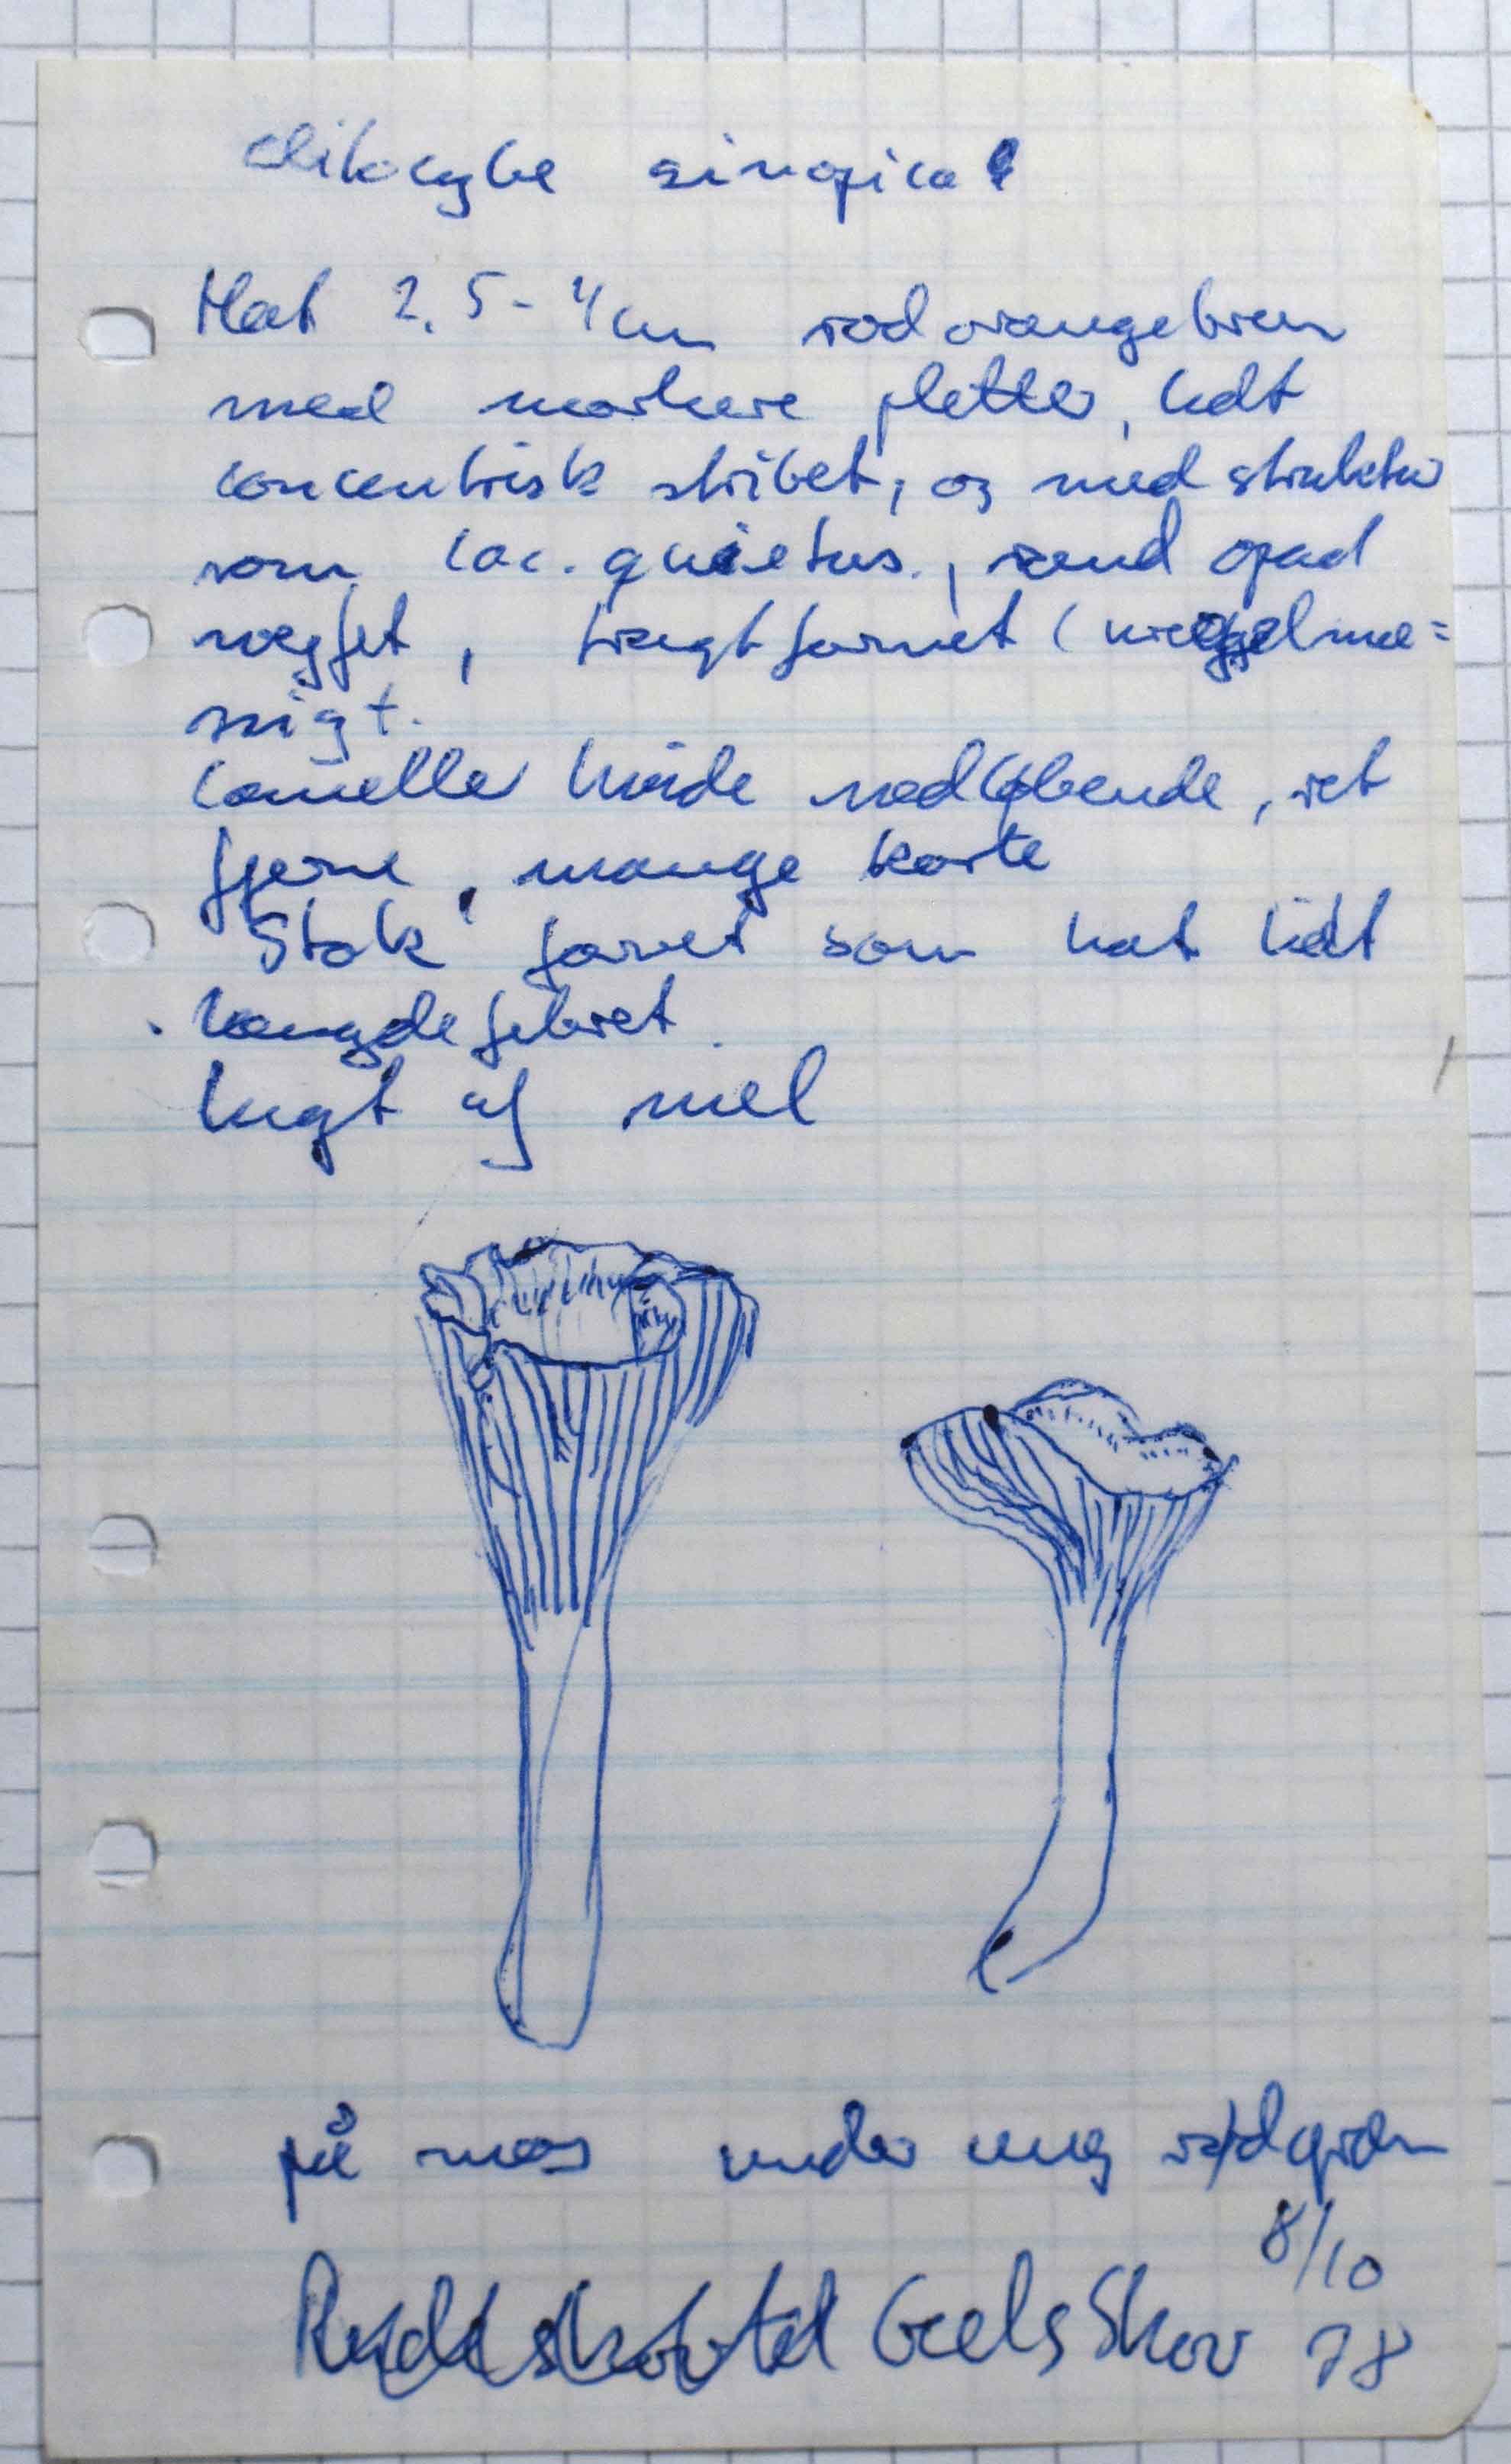 Clitocybe sinopica
Hat 2,5-4cm rødorangebrun
med mørkere pletter, lidt
concentrisk stribet, og med struktur
som Lac. quietus., rand opad
bøjet, tragtformet (uregelmæ=
ssigt.
Lameller hvide nedløbende, ret
fjerne, mange korte
Stok farvet som hat lidt
længdefibret
Lugt af mel
på mos under ung rødgran
8/10
Geels Skov 78